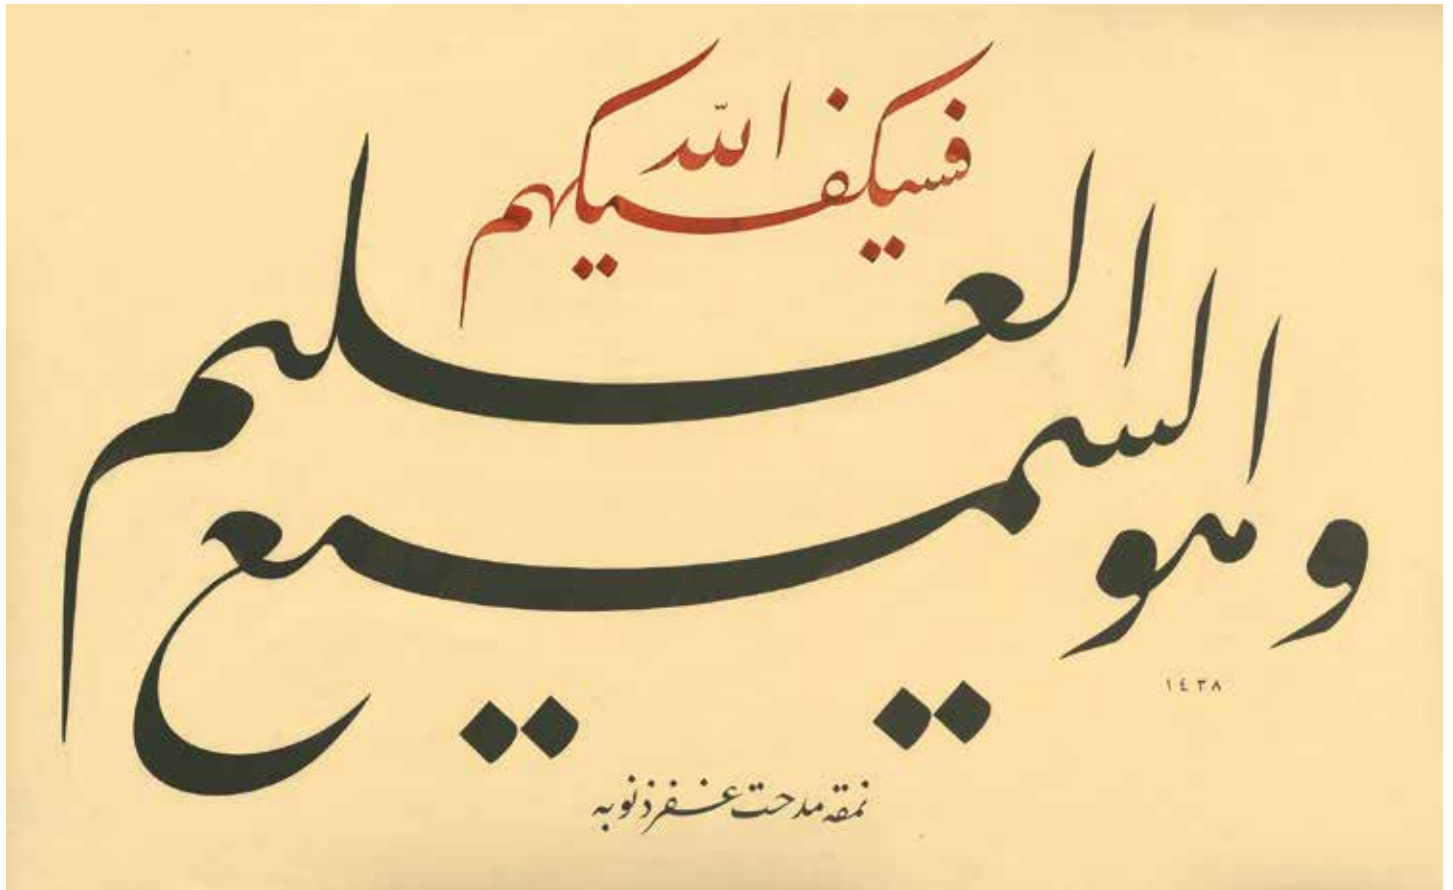 فسيكفيكهم الله
وهو السميع العليم
١٤٣٨
نمقه مدحت غفر ذنوبه